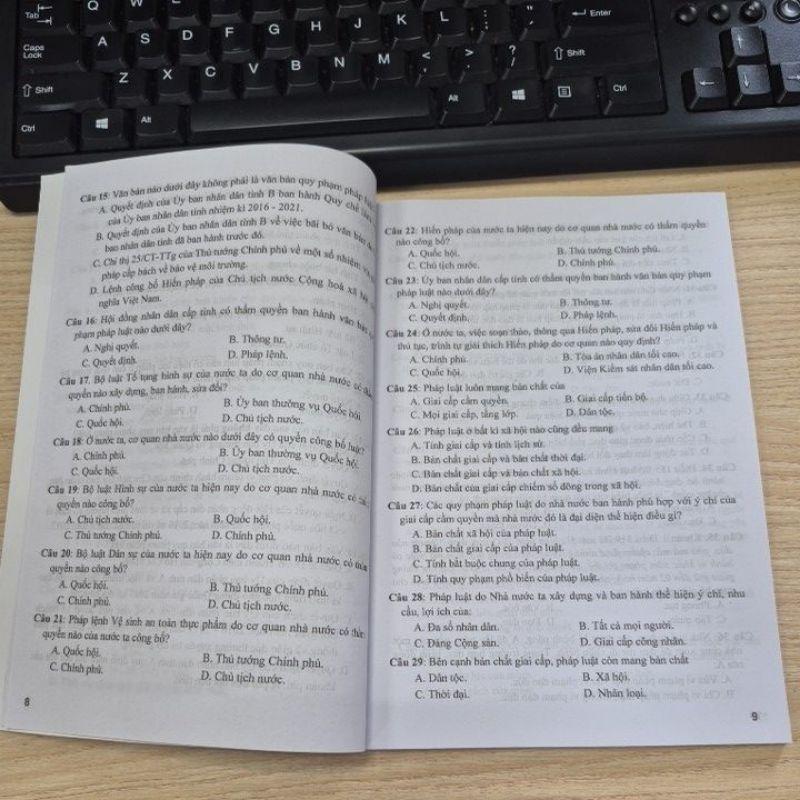 Tab
Q
W
Enter
Caps Lock
A S D F G H J K L
Shift
Z X C V B N M < > ?
Shift
Ctrl
Alt
Alt
Ctrl
Câu 15: Văn bản nào dưới đây không phải là văn bản quy phạm pháp
A. Quyết định của Ủy ban nhân dân tỉnh B ban hành Quy chế
của Ủy ban nhân dân tỉnh nhiệm kì 2016 - 2021.
B. Quyết định của Ủy ban nhân dân tỉnh B về việc bãi bỏ văn bản
ban nhân dân tỉnh đã ban hành trước đó.
C. Chỉ thị 25/CT-TTg của Thủ tướng Chính phủ về một số nhiệm
pháp cấp bách về bảo vệ môi trường.
D. Lệnh công bố Hiến pháp của Chủ tịch nước Cộng hoà xã hội
nghĩa Việt Nam.
Câu 16: Hội đồng nhân dân cấp tỉnh có thẩm quyền ban hành văn bản
phạm pháp luật nào dưới đây?
A. Nghị quyết. B. Thông tư.
C. Quyết định. D. Pháp lệnh.
Câu 17. Bộ luật Tố tụng hình sự của nước ta do cơ quan nhà nước có
quyền nào xây dựng, ban hành, sửa đổi?
A. Chính phủ. B. Ủy ban thường vụ Quốc hội.
C. Quốc hội. D. Chủ tịch nước.
Câu 18: Ở nước ta, cơ quan nhà nước nào dưới đây có quyền công bố luật?
A. Chính phủ. B. Ủy ban thường vụ Quốc hội.
C. Quốc hội. D. Chủ tịch nước.
Câu 19: Bộ luật Hình sự của nước ta hiện nay do cơ quan nhà nước có
quyền nào công bố?
A. Chủ tịch nước. B. Quốc hội.
C. Thủ tướng Chính phủ. D. Chính phủ.
Câu 20: Bộ luật Dân sự của nước ta hiện nay do cơ quan nhà nước có
quyền nào công bố?
A. Quốc hội. B. Thủ tướng Chính phủ.
C. Chính phủ. D. Chủ tịch nước.
Câu 21: Pháp lệnh Vệ sinh an toàn thực phẩm do cơ quan nhà nước có
quyền nào của nước ta công bố?
A. Quốc hội. B. Thủ tướng Chính phủ.
C. Chính phủ. D. Chủ tịch nước.
8
Câu 22: Hiến pháp của nước ta hiện nay do cơ quan nhà nước có thẩm quyền
nào công bố?
A. Quốc hội. B. Thủ tướng Chính phủ.
C. Chủ tịch nước. D. Chính phủ.
Câu 23: Ủy ban nhân dân cấp tỉnh có thẩm quyền ban hành văn bản quy phạm
pháp luật nào dưới đây?
A. Nghị quyết. B. Thông tư.
C. Quyết định. D. Pháp lệnh.
Câu 24: Ở nước ta, việc soạn thảo, thông qua Hiến pháp, sửa đổi Hiến pháp và
thủ tục, trình tự giải thích Hiến pháp do cơ quan nào quy định?
A. Chính phủ. B. Tòa án nhân dân tối cao.
C. Quốc hội. D. Viện Kiểm sát nhân dân tối cao.
Câu 25: Pháp luật luôn mang bản chất của
A. Giai cấp cầm quyền. B. Giai cấp tiến bộ.
C. Mọi giai cấp, tầng lớp. D. Dân tộc.
Câu 26: Pháp luật ở bất kì xã hội nào cũng đều mang
A. Tính giai cấp và tính lịch sử.
B. Bản chất giai cấp và bản chất thời đại.
C. Bản chất giai cấp và bản chất xã hội.
D. Bản chất của giai cấp chiếm số đông trong xã hội.
Câu 27: Các quy phạm pháp luật do nhà nước ban hành phù hợp với ý chí của
giai cấp cầm quyền mà nhà nước đó là đại diện thể hiện điều gì?
A. Bản chất xã hội của pháp luật.
B. Bản chất giai cấp của pháp luật.
C. Tính bắt buộc chung của pháp luật.
D. Tính quy phạm phổ biến của pháp luật.
Câu 28: Pháp luật do Nhà nước ta xây dựng và ban hành thể hiện ý chí, nhu
cầu, lợi ích của:
A. Đa số nhân dân. B. Tất cả mọi người.
C. Đảng Cộng sản. D. Giai cấp công nhân.
Câu 29: Bên cạnh bản chất giai cấp, pháp luật còn mang bản chất
A. Dân tộc. B. Xã hội.
C. Thời đại. D. Nhân loại.
9